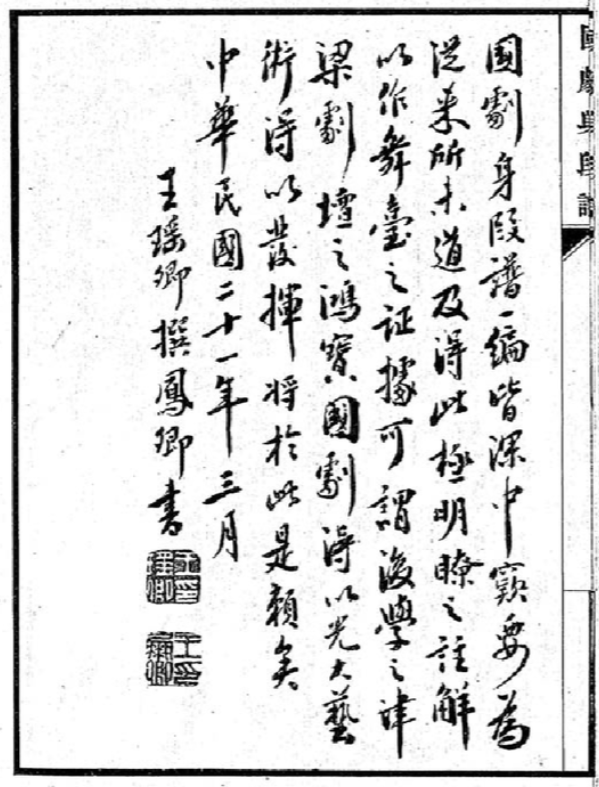 國劇身段譜
國劇身段譜一編皆深中窾要為
從來所未道及得此極明瞭之註解
以作舞臺之証據可謂後學之津
梁劇壇之鴻寶國劇得以光大藝
術得以發揮將於此是賴矣
中華民國二十一年三月
王瑤卿撰鳳卿書